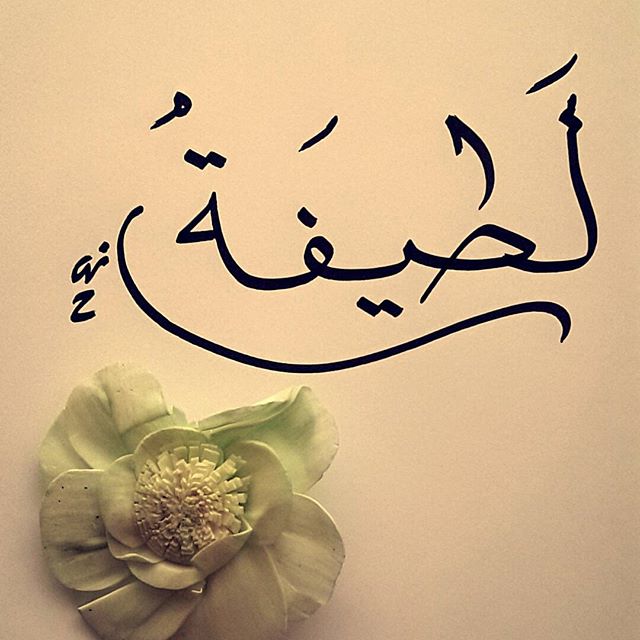 لَطيفَةُ